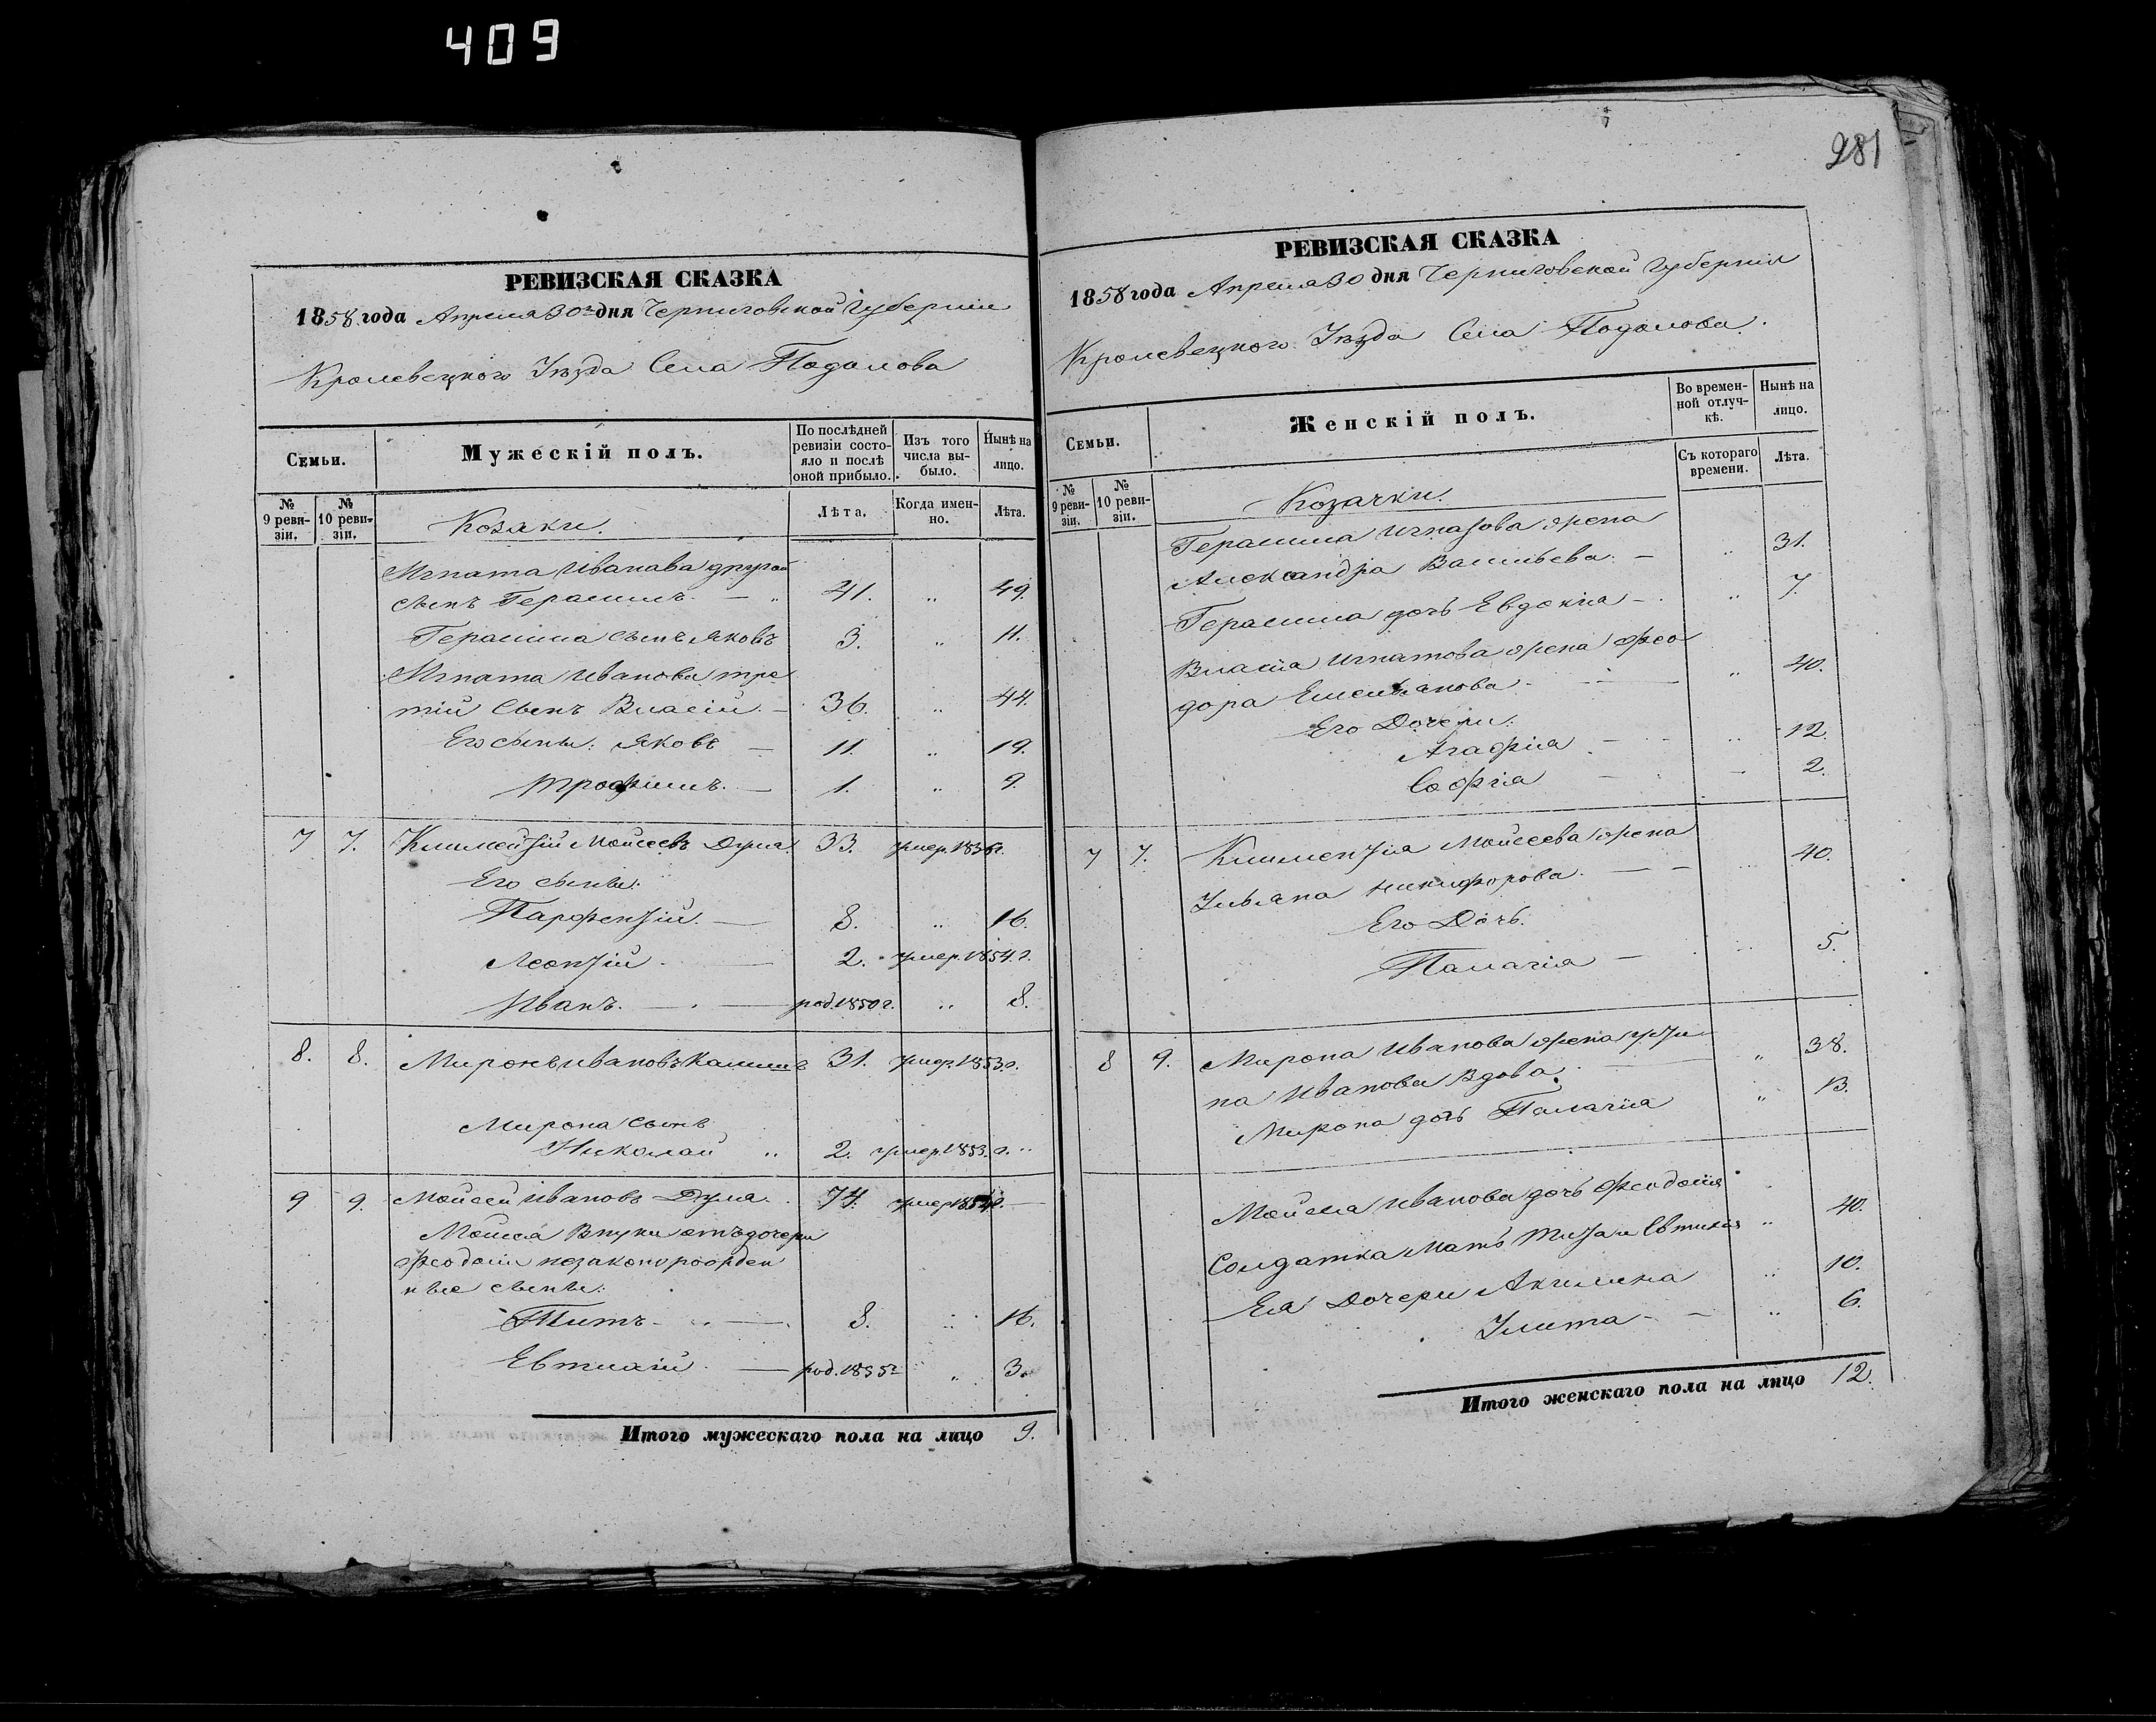 409
РЕВИЗСКАЯ СКАЗКА
1858 года Апреля 30 дня Черниговской Губернии
Кролевецкого Уѣзда Села Подолова
Семьи.
Мужескій полъ.
По послѣдней ревизіи состояло и послѣ оной прибыло.
Изъ того числа выбыло.
Нынѣ на лицо.
№ 9 ревизіи.
№ 10 ревизіи.
Козаки.
Лѣта.
Когда именно.
Лѣта.
Игната Иванава другой
сынъ Герасимъ. — 41. „ 49.
Герасима сынъ Яковъ 3. „ 11.
Игната Иванова тре
тій Сынъ Власій. — 36. „ 44.
Его сыны: Яковъ — 11. „ 19.
Трофимъ. — 1. „ 9.
7 7. Климентій Моисеевъ Дума. 33. умер. 1856г.
Его сыны:
Парфентій. — 8. „ 16.
Леонтій. — 2. умер. 1854. г.
Иванъ. — род. 1850 г. „ 8.
8. 8. Миронъ Ивановъ 31. умер. 1853. г.
Мирона Сынъ
Николай „ 2. умер. 1853. г. „
9 9. Моисей Ивановъ Дума. 74. умер 1854г. —
Моисея Внуки отъ дочери
Феодосіи незаконорожден
ные сыны:
Титъ — 8. „ 16.
Евтихій. — род. 1855г „ 3.
Итого мужескаго пола на лицо 9.
281
РЕВИЗСКАЯ СКАЗКА
1858 года Апреля 30 дня Черниговской Губерніи
Кролевецкого Уѣзда Села Подолова.
Семьи.
Женскій полъ.
Во временной отлучкѣ.
Нынѣ на лицо.
№ 9 ревизіи.
№ 10 ревизіи.
Козачки.
Съ котораго времени.
Лѣта.
Герасима Игнатова жена
Александра Васильева. — „ 31.
Герасима дочь Евдокия — „ 7.
Власія Игнатова жена Фео
дора Емельянова — „ 40.
Его Дочери:
Агафія — „ 12.
Софія — 2.
7 7. Климентія Моисеева жена
Ульяна Никифорова. — „ 40.
Его Дочь.
Палагія — „ 5.
8 9. Мирона Иванова жена Усти
на Иванова Вдова. „ 38.
Мирона дочь Палагія „ 13.
Моисея Иванова дочь Феодосія
Солдатка Мать Тита и Евтихія „ 40.
Ея Дочери Акилина „ 10.
Улита — „ 6.
Итого женскаго пола на лицо 12.